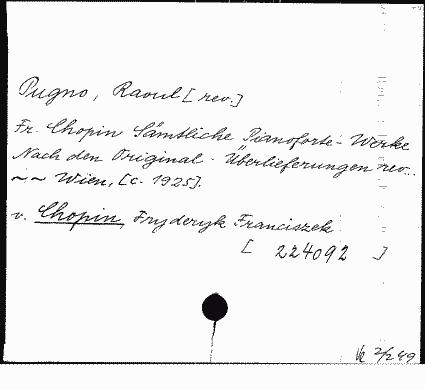 Pugno, Raoul [rev.]
Fr. Chopin Sämtliche Pianoforte-Werke
Nach den Original-Überlieferungen rev..
~ ~ Wien, [c. 1925].
v. Chopin, Fryderyk Franciszek
[ 224092 ]
2/249